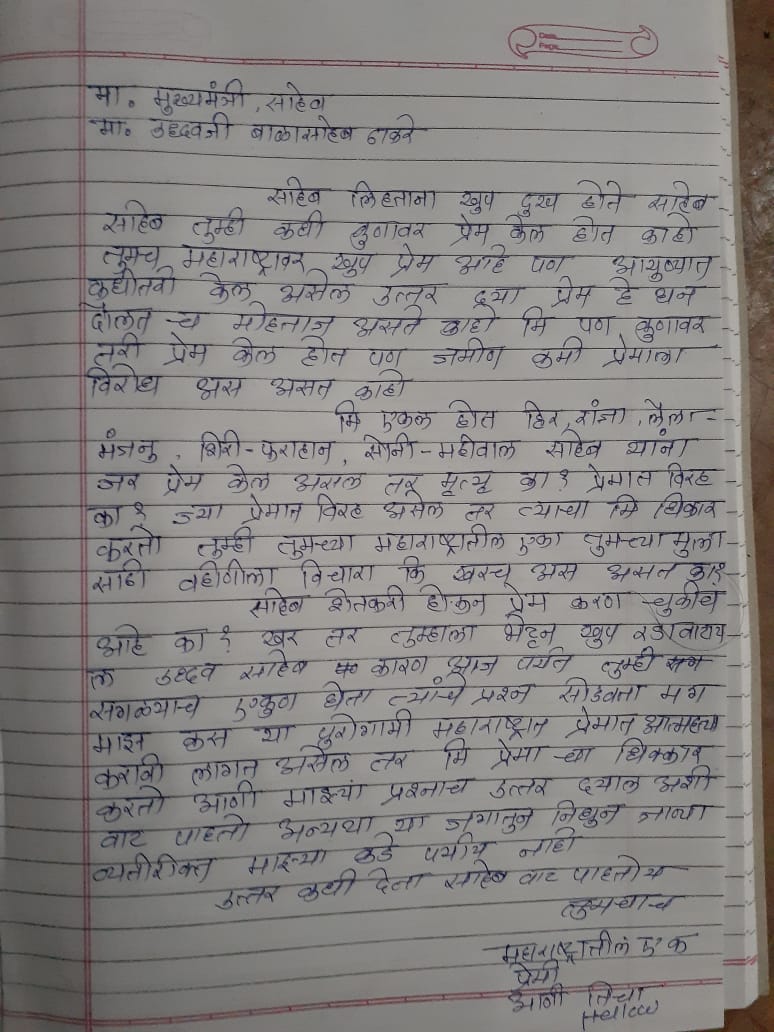 Date.
Page.
मा. मुख्यमंत्री, साहेब
मा. उध्दवजी बाळासाहेब ठाकरे
साहेब लिहताना खुप दुख होते साहेब
साहेब तुम्ही कधी कुणावर प्रेम केल होत काहो
तुमच महाराष्ट्रावर खुप प्रेम आहे पण आयुष्यात
कधीतरी केल असेल उत्तर द्या प्रेम हे धन
दौलत च मोहताज असते काहो मि पण कुणावर
तरी प्रेम केल होत पण जमीण कमी प्रेमाला
विरोध अस असत काहो
मि एकल होत हिर, रांजा, लैला-
मंजनु, शिरी-फुराहान, सोनी-महीवाल साहेब यांना
जर प्रेम केल असल तर मृत्यू का? प्रेमात विरह
का? ज्या प्रेमात विरह असेल तर त्याचा मि धिकार
करतो तुम्ही तुमच्या महाराष्ट्रातील एका तुमच्या मुला-
साठी वहीणीला विचारा कि खरच अस असत का?
साहेब शेतकरी होऊन प्रेम करण चुकीचं
आहे का? खर तर तुम्हाला भेटून खुप रडावाटाय
ल उध्दव साहेब कारण आज पर्यंत तुम्ही
सगळ्याच एकुण घेता त्यांचे प्रश्न सोडवता मग
माझ कस या पुरोगामी महाराष्ट्रात प्रेमात आत्महत्या
करावी लागत असेल तर मि प्रेमा चा धिक्कार
करतो आणी माझ्या प्रश्नाच उत्तर द्याल अशी
वाट पाहतो अन्यथा या जगातुन निघुन जान्या
व्यतीरीक्त माझ्या कडे पर्याय नाही
उत्तर कधी देता साहेब वाट पाहतोय
तुमचाच
महाराष्ट्रातील एक
प्रेमी
आणी तिचा